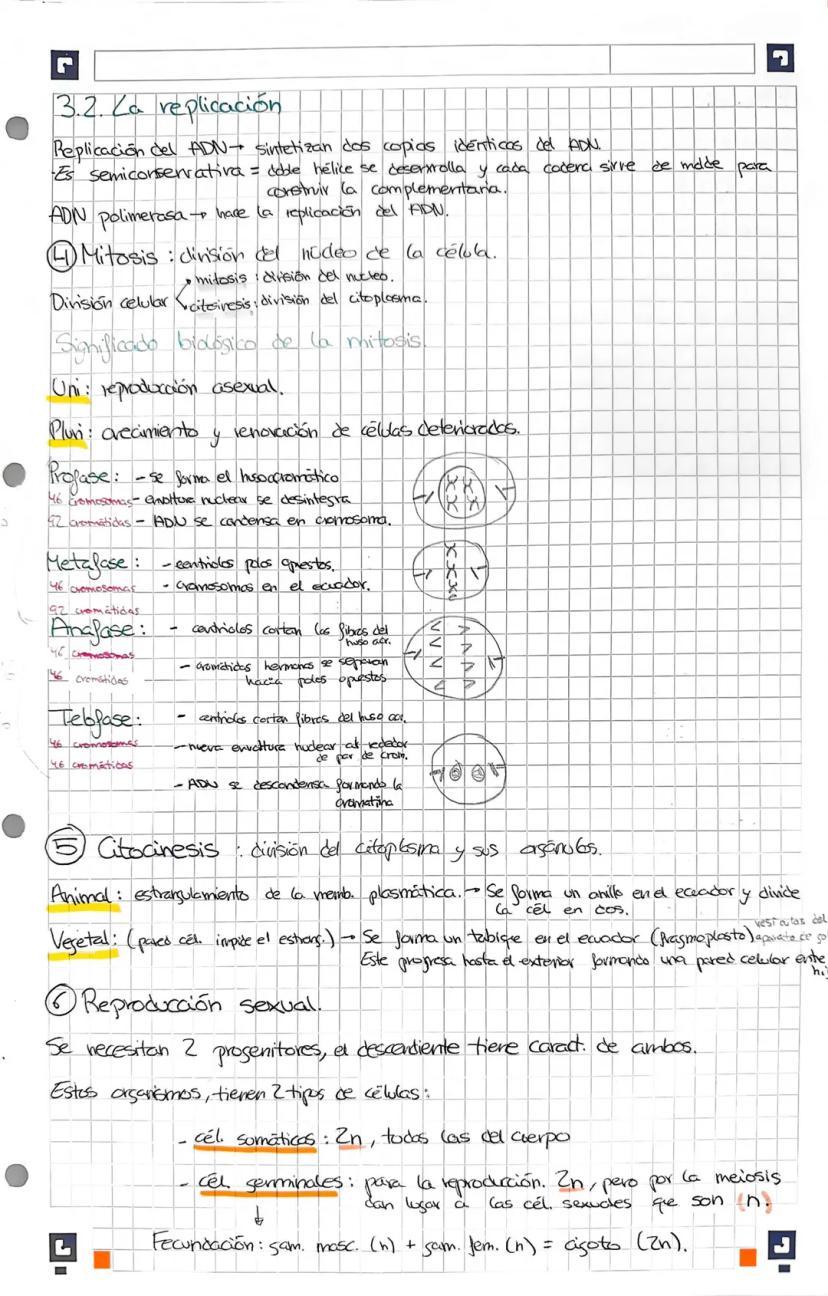 3.2. La replicación
Replicación del ADN → sintetizan dos copias idénticas del ADN.
·Es semiconservativa = doble hélice se desenrolla y cada cadena sirve de molde para
construir la complementaria.
ADN polimerasa → hace la replicación del ADN.
④ Mitosis : división del núcleo de la célula.
• mitosis : división del nucleo.
División celular
• citosinesis : división del citoplasma.
Significado biológico de la mitosis.
Uni : reproducción asexual.
Pluri : crecimiento y renovación de células deterioradas.
Profase : - se forma el huso acromático
46 cromosomas - envoltura nuclear se desintegra
92 cromátidas - ADN se condensa en cromosoma.
Metafase : - centriolos polos opuestos.
46 cromosomas - cromosomas en el ecuador.
92 cromátidas
Anafase : - centriolos cortan las fibras del
huso acr.
46 cromosomas
- cromátidas hermanas se separan
46 cromátidas hacia polos opuestos
Telofase : - centriolos cortan fibras del huso acr.
46 cromosomas - nueva envoltura nuclear al rededor
de par de crom.
46 cromáticas
- ADN se descondensa formando la
cromatina
⑤ Citocinesis : división del citoplasma y sus orgánulos.
Animal : estrangulamiento de la memb. plasmática. → Se forma un anillo en el ecuador y divide
la cél en dos.
Vegetal : (pared cél. impide el estrang.) → Se forma un tabique en el ecuador (fragmoplasto) vesículas del
aparato de gol
Este progresa hasta el exterior formando una pared celular entre
h.
⑥ Reproducción sexual.
Se necesitan 2 progenitores, el descendiente tiene caract. de ambos.
Estos organismos, tienen 2 tipos de células :
- cél. somáticas : 2n, todas las del cuerpo
- cél. germinales : para la reproducción. 2n, pero por la meiosis
dan lugar a las cél. sexuales que son (n).
↓
Fecundación : gam. masc. (n) + gam. fem. (n) = cigoto (2n).